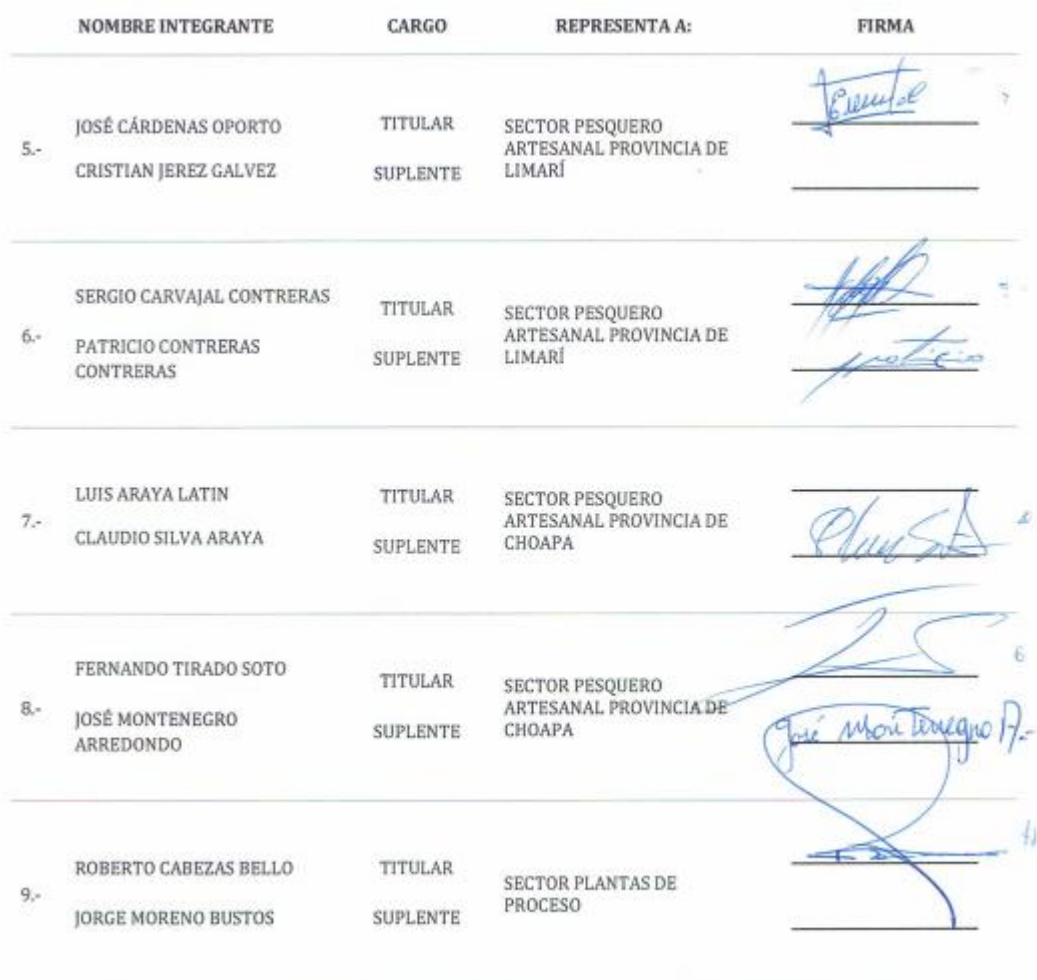 NOMBRE INTEGRANTE CARGO REPRESENTA A: FIRMA
5.-
JOSÉ CÁRDENAS OPORTO TITULAR
CRISTIAN JEREZ GALVEZ SUPLENTE
SECTOR PESQUERO
ARTESANAL PROVINCIA DE
LIMARÍ
6.-
SERGIO CARVAJAL CONTRERAS TITULAR
PATRICIO CONTRERAS
CONTRERAS
SUPLENTE
SECTOR PESQUERO
ARTESANAL PROVINCIA DE
LIMARÍ
patricio
7.-
LUIS ARAYA LATIN TITULAR
CLAUDIO SILVA ARAYA SUPLENTE
SECTOR PESQUERO
ARTESANAL PROVINCIA DE
CHOAPA
8.-
FERNANDO TIRADO SOTO TITULAR
JOSÉ MONTENEGRO
ARREDONDO
SUPLENTE
SECTOR PESQUERO
ARTESANAL PROVINCIA DE
CHOAPA
José Montenegro A.-
9.-
ROBERTO CABEZAS BELLO TITULAR
JORGE MORENO BUSTOS SUPLENTE
SECTOR PLANTAS DE
PROCESO